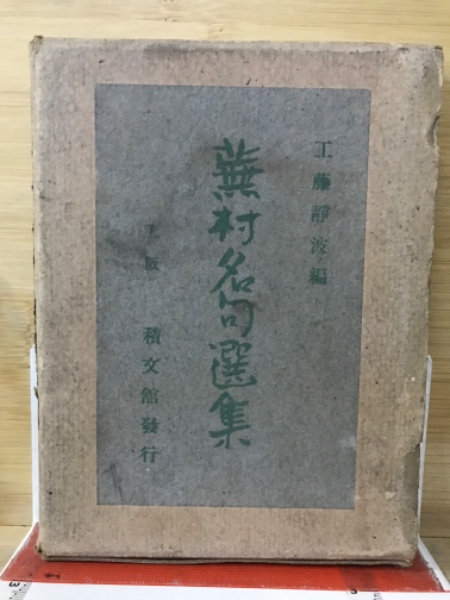 工藤靜波編
蕪村名句選集
大阪 積文館發行